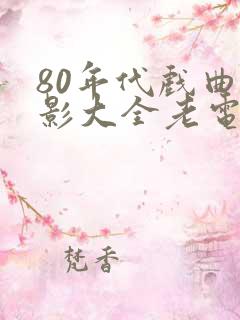 80年代戏曲
影大全老电
梵香